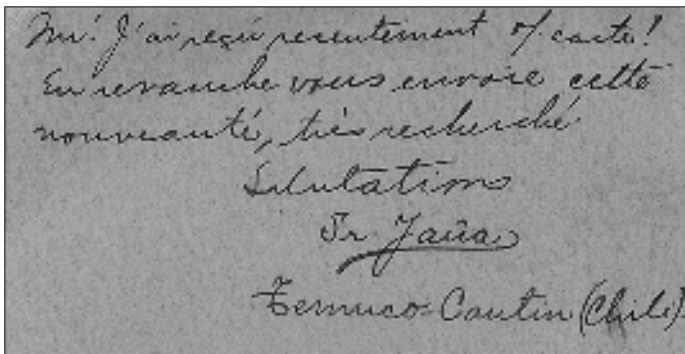 Mr! J'ai reçu recentement v/ carte!
En revanche vous envoie cette
nouveauté, très recherché
Salutations
Fr. Jaña
Temuco-Cautin (Chile)